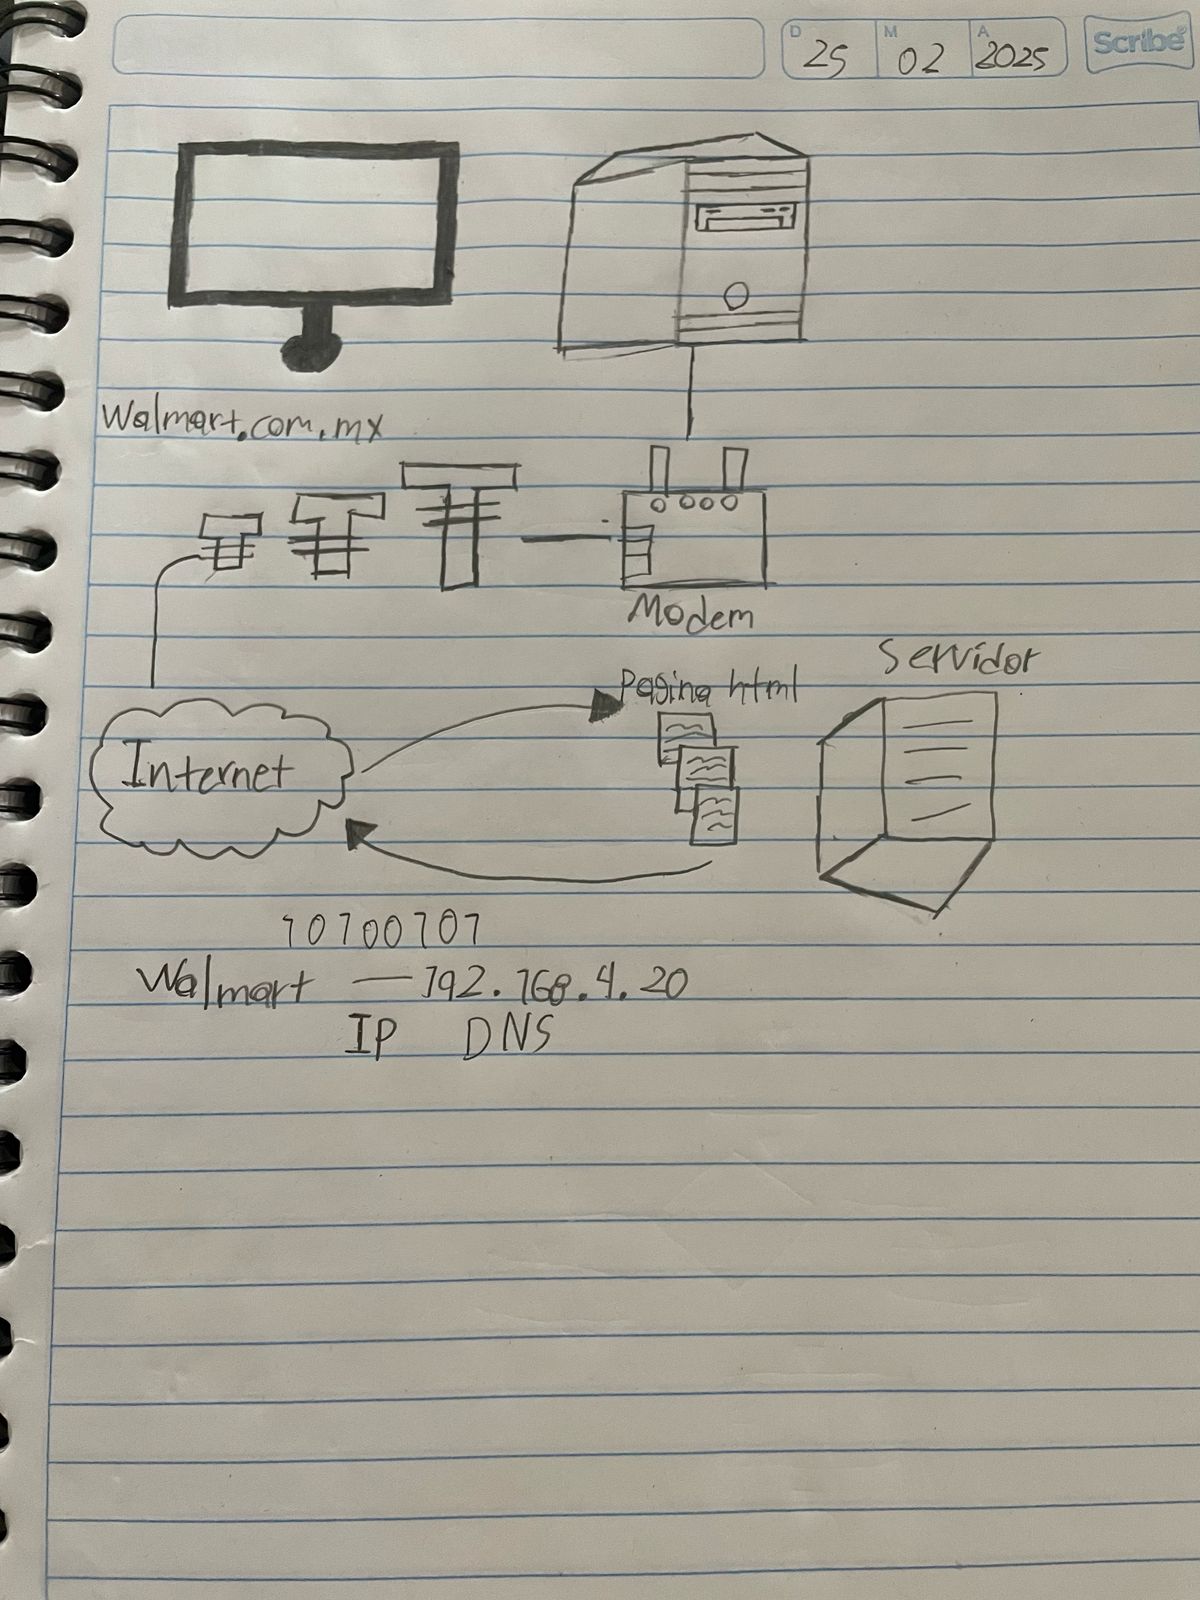 D 25 M 02 A 2025 Scribe
Walmart.com.mx
Modem
Servidor
Pagina html
Internet
10100101
Walmart — 192.168.4.20
IP DNS